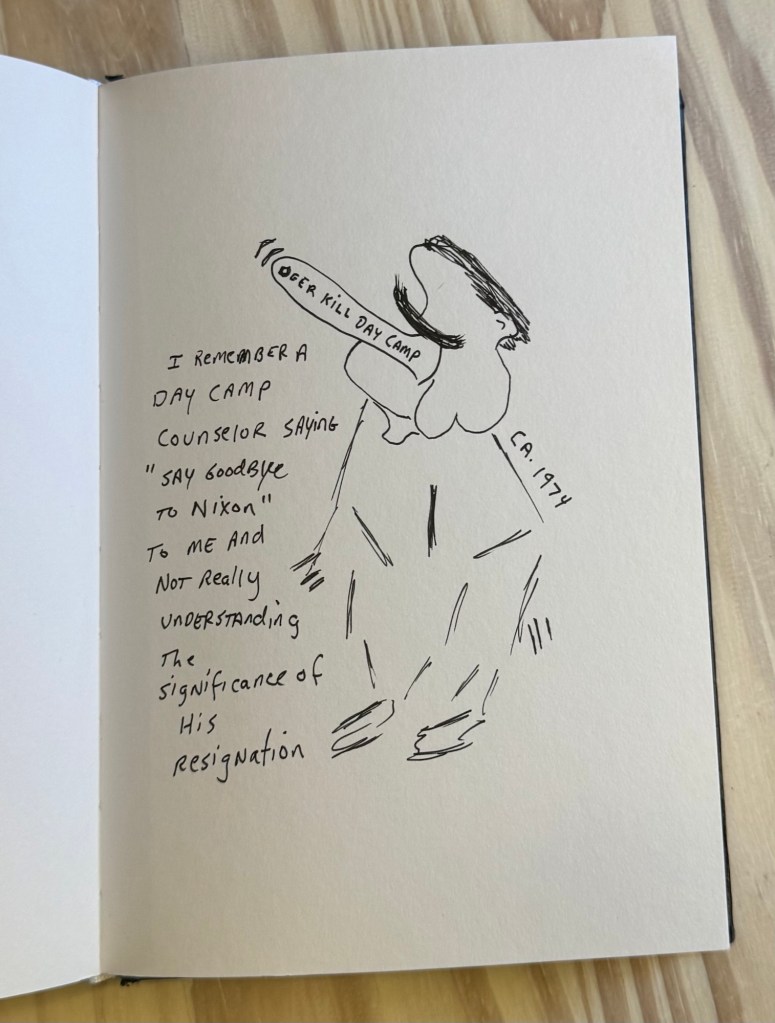 DEER KILL DAY CAMP
I REMEMBER A
DAY CAMP
COUNSELOR SAYING
"SAY GOODBYE
TO NIXON"
TO ME AND
NOT REALLY
UNDERSTANDING
THE
SIGNIFICANCE OF
HIS
RESIGNATION
CA. 1974